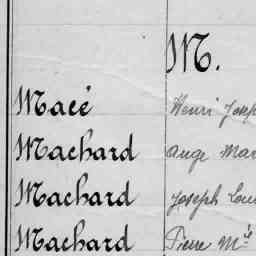 M.
Macé Henri
Machard Ange
Machard Joseph
Machard Pierre M.